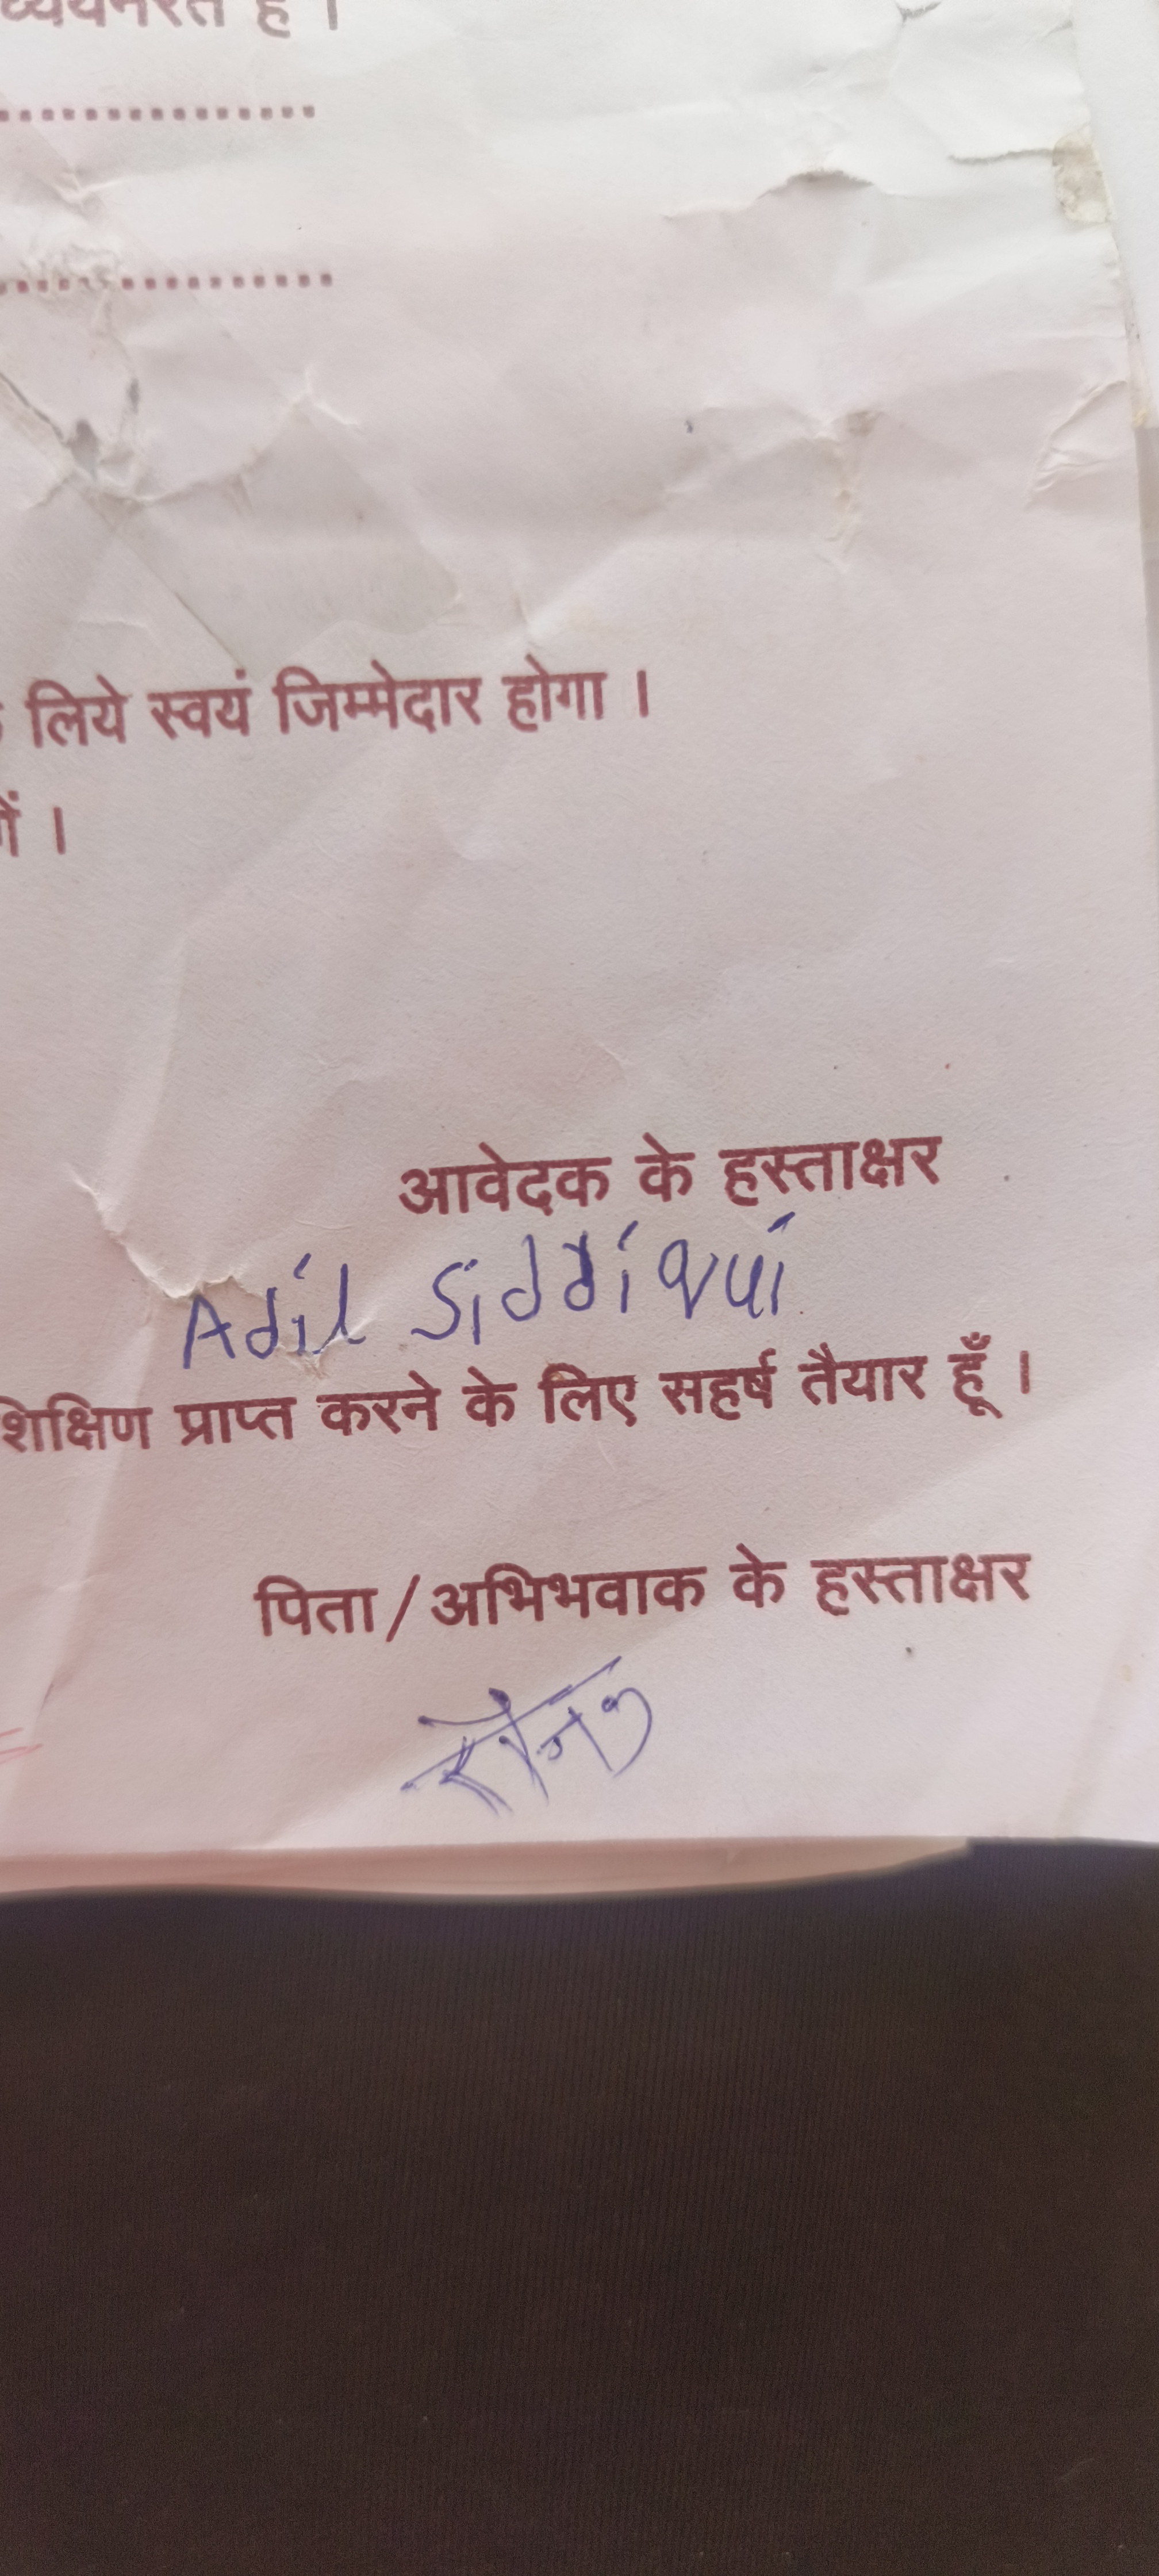 ध्ययनरत है ।
..................
..................
लिये स्वयं जिम्मेदार होगा ।
गें ।
आवेदक के हस्ताक्षर
Adil Siddiqui
शिक्षिण प्राप्त करने के लिए सहर्ष तैयार हूँ ।
पिता/अभिभवाक के हस्ताक्षर